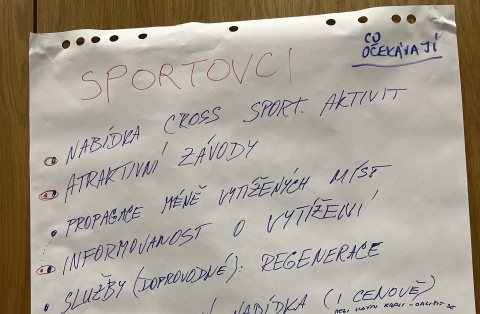 SPORTOVCI
CO
OČEKÁVAJÍ
NABÍDKA CROSS SPORT. AKTIVIT
ATRAKTIVNÍ ZÁVODY
PROPAGACE MÉNĚ VYTÍŽENÝCH MÍST
INFORMOVANOST O VYTÍŽENÍ
SLUŽBY (DOPROVODNÉ): REGENERACE
NABÍDKA (I CENOVĚ)